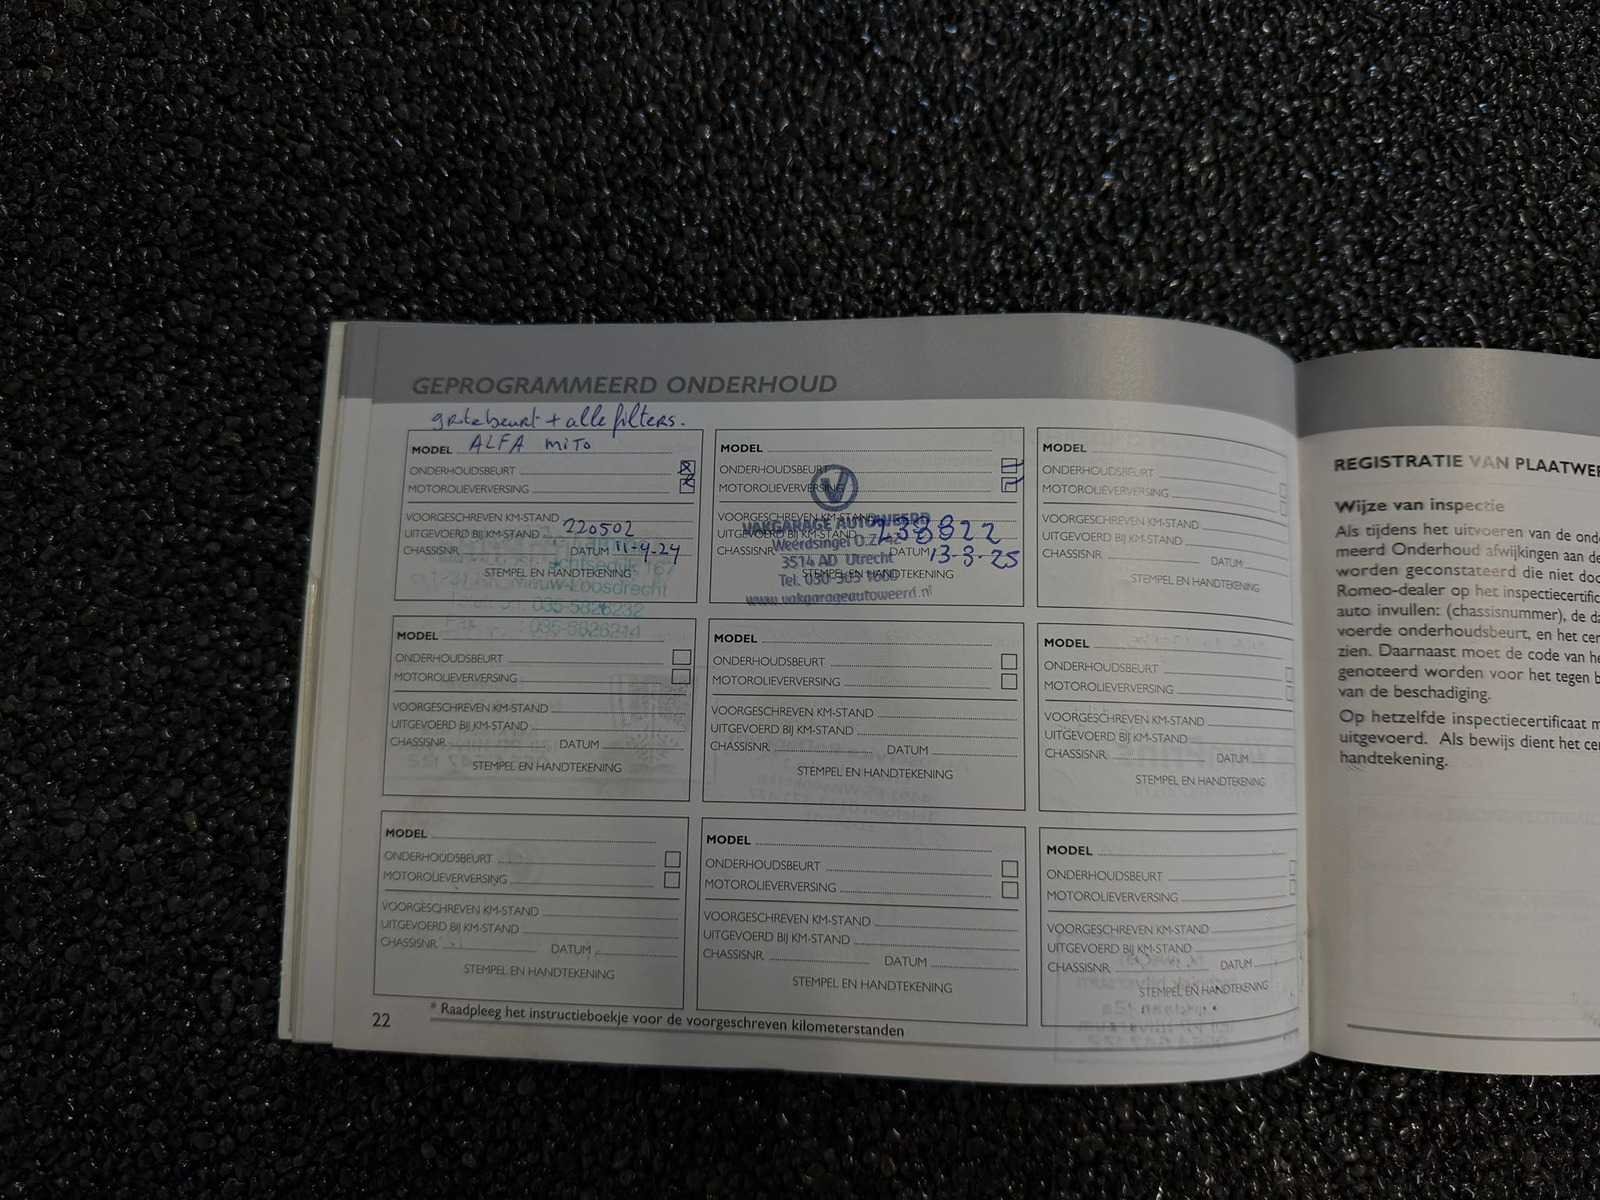 GEPROGRAMMEERD ONDERHOUD
grotebeurt + alle filters.
MODEL ALFA MITO
ONDERHOUDSBEURT
MOTOROLIEVERVERSING
VOORGESCHREVEN KM-STAND
UITGEVOERD BIJ KM-STAND 220502
CHASSISNR. DATUM 11-4-24
STEMPEL EN HANDTEKENING
167
Loosdrecht
035-5826232
035-5826214
MODEL
ONDERHOUDSBEURT
MOTOROLIEVERVERSING
VOORGESCHREVEN KM-STAND
UITGEVOERD BIJ KM-STAND 238822
CHASSISNR. DATUM 13-3-25
STEMPEL EN HANDTEKENING
VAKGARAGE AUTOWEERD
Weerdsingel O.Z. 42
3514 AD Utrecht
Tel. 030-303 1600
www.vakgarageautoweerd.nl
MODEL
ONDERHOUDSBEURT
MOTOROLIEVERVERSING
VOORGESCHREVEN KM-STAND
UITGEVOERD BIJ KM-STAND
CHASSISNR. DATUM
STEMPEL EN HANDTEKENING
MODEL
ONDERHOUDSBEURT
MOTOROLIEVERVERSING
VOORGESCHREVEN KM-STAND
UITGEVOERD BIJ KM-STAND
CHASSISNR. DATUM
STEMPEL EN HANDTEKENING
MODEL
ONDERHOUDSBEURT
MOTOROLIEVERVERSING
VOORGESCHREVEN KM-STAND
UITGEVOERD BIJ KM-STAND
CHASSISNR. DATUM
STEMPEL EN HANDTEKENING
MODEL
ONDERHOUDSBEURT
MOTOROLIEVERVERSING
VOORGESCHREVEN KM-STAND
UITGEVOERD BIJ KM-STAND
CHASSISNR. DATUM
STEMPEL EN HANDTEKENING
MODEL
ONDERHOUDSBEURT
MOTOROLIEVERVERSING
VOORGESCHREVEN KM-STAND
UITGEVOERD BIJ KM-STAND
CHASSISNR. DATUM
STEMPEL EN HANDTEKENING
MODEL
ONDERHOUDSBEURT
MOTOROLIEVERVERSING
VOORGESCHREVEN KM-STAND
UITGEVOERD BIJ KM-STAND
CHASSISNR. DATUM
STEMPEL EN HANDTEKENING
MODEL
ONDERHOUDSBEURT
MOTOROLIEVERVERSING
VOORGESCHREVEN KM-STAND
UITGEVOERD BIJ KM-STAND
CHASSISNR. DATUM
STEMPEL EN HANDTEKENING
22
* Raadpleeg het instructieboekje voor de voorgeschreven kilometerstanden
REGISTRATIE VAN PLAATWE
Wijze van inspectie
Als tijdens het uitvoeren van de ond
meerd Onderhoud afwijkingen aan de
worden geconstateerd die niet doo
Romeo-dealer op het inspectiecertific
auto invullen: (chassisnummer), de da
voerde onderhoudsbeurt, en het cer
zien. Daarnaast moet de code van he
genoteerd worden voor het tegen b
van de beschadiging.
Op hetzelfde inspectiecertificaat m
uitgevoerd. Als bewijs dient het ce
handtekening.